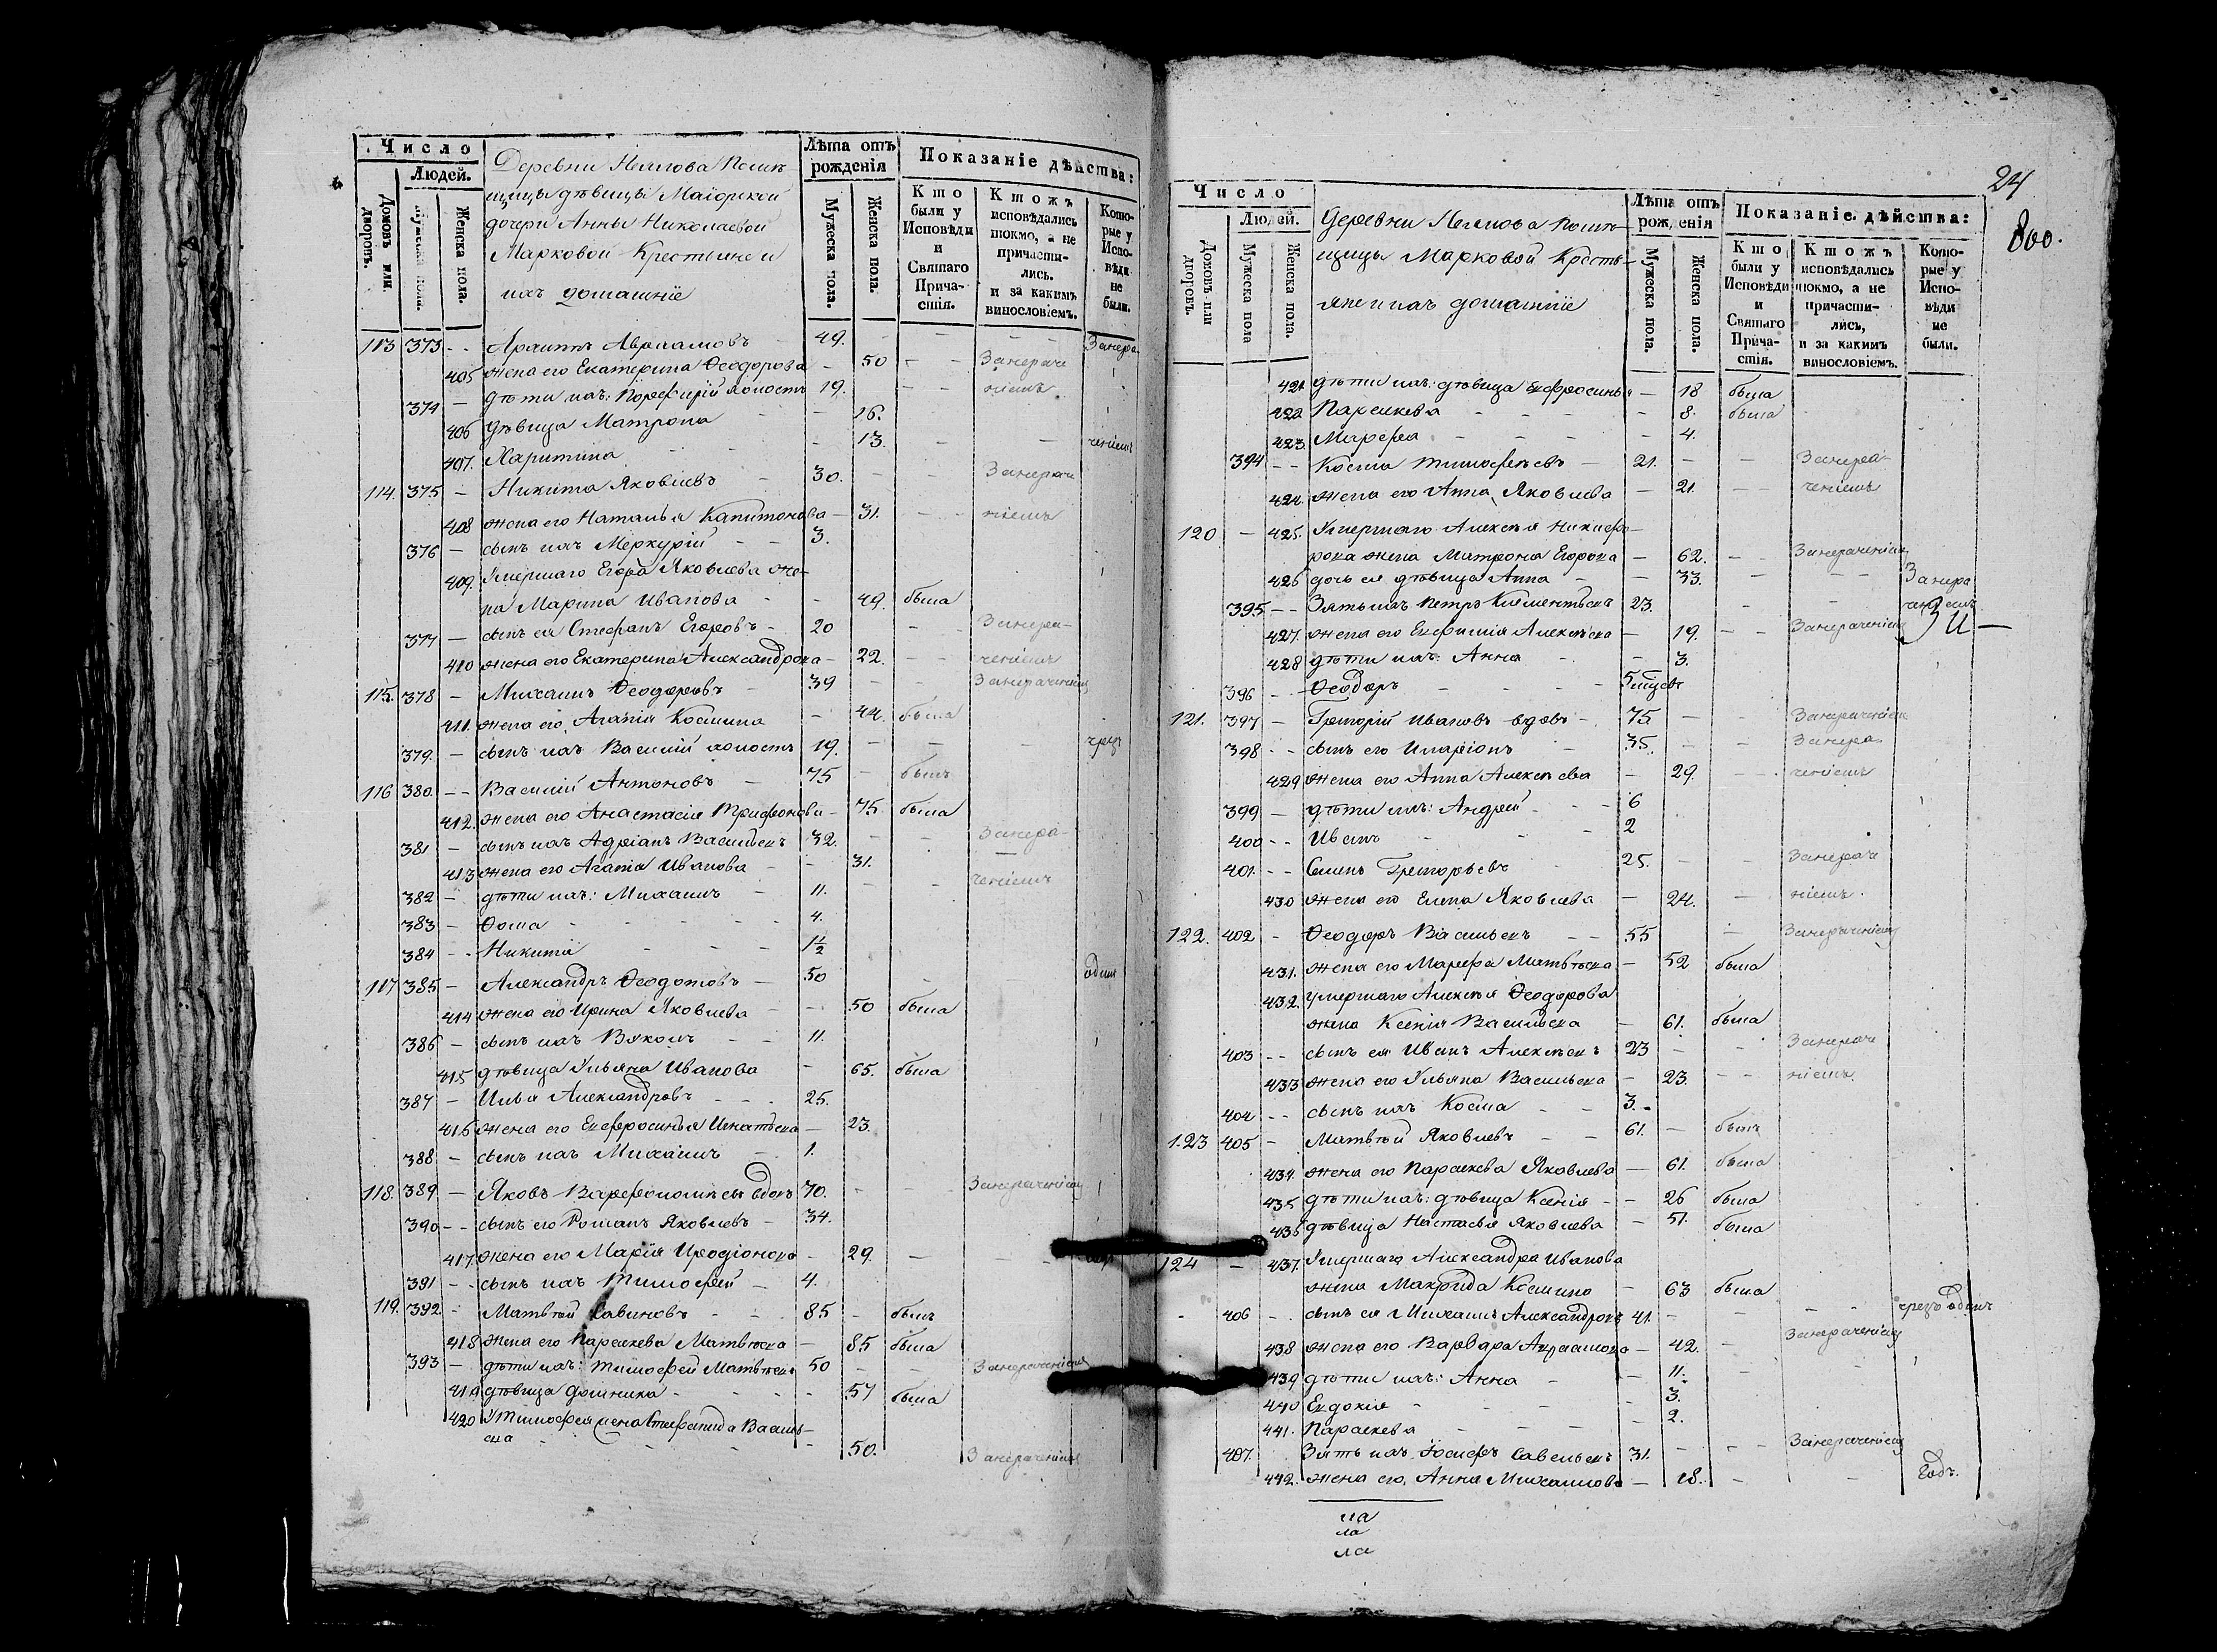 Число
Людей.
Домовъ или дворовъ.
Мужеска пола.
Женска пола.
Деревни Нелюгова Помѣ-
щицы дѣвицы Маіорской
дочери Анны Николаевой
Марковой Крестьяне и
ихъ домашніе
Лѣта отъ рожденія
Мужеска пола.
Женска пола.
Показаніе дѣйства:
Кто были у Исповѣди и Святаго Прича-стія.
Ктожъ исповѣдались токмо, а не причасти-лись. и за какимъ винословіемъ.
Кото-рые у Испо-вѣди не были.
113 373 - - Авраамовъ - 49. - - - Занера-
405 жена его Екатерина Ѳеодорова - 50 - - Занераче
374 - дѣти ихъ: Порфирій холостъ 19. - - ніемъ
406 дѣвица Матрона - - 16.
407. Харитина - - 13. - - ченіемъ
114. 375 - Никита Яковлевъ - 30. - - Занераче
408 жена его Наталья Капитонова - 31. - - ніемъ
376 - сынъ ихъ Меркурій - - 3.
409. Умершаго Егора Яковлева же-
на Марина Иванова - - 49. была
377 - сынъ ея Стефанъ Егоровъ - 20 - - Занера-
410 жена его Екатерина Александрова - 22. - - ченіемъ
115. 378 - Михаилъ Ѳеодоровъ - 39 - - Занераченіемъ
411. жена его Агапія Космина - 44. была
379. - сынъ ихъ Василій холостъ 19. - - -
116 380. - - Василій Антоновъ - 75 - былъ
412. жена его Анастасія Трифонова - 75. была
381 - сынъ ихъ Адріанъ Васильевъ 32. - - Занера-
413 жена его Агапія Иванова - - 31.
382 - дѣти ихъ: Михаилъ - 11. - - ченіемъ
383 - Ѳома - - - - 4.
384 - - Никита - - - 1½
117 385 - Александръ Ѳеодотовъ - 50
414 жена его Ирина Яковлева - - 50 была
386 - сынъ ихъ - - 11.
415 дѣвица Ульяна Иванова - 65. была
387 - Илья Александровъ - - - 25.
416 жена его Евфросинья Игнатьева - 23.
388 - сынъ ихъ Михаилъ - 1.
118. 389 - Яковъ Варфоломѣевъ вдовъ 70. - - Занераченіемъ
390 - - сынъ его Романъ Яковлевъ - 34.
417. жена его Марія Иродіонова - 29. - - -
391 - - сынъ ихъ Тимофей - 4.
119. 392 - Матвѣй Савиновъ - - 85 - былъ
418 жена его Параскева Матвѣева - 85 была
393 - дѣти ихъ: Тимофей Матвѣевъ 50 - - Занераченіемъ
419 дѣвица Домника - - - - 57 была
420 У Тимофея жена Стефанида Василь-
ева - - - - 50. Занераченіемъ
24
800.
Число
Людей.
Домовъ или дворовъ.
Мужеска пола
Женска пола.
Деревни Нелюгова Помѣ-
щицы Марковой Кресть-
яне и ихъ домашніе
Лѣта отъ рожденія
Мужеска пола.
Женска пола.
Показаніе дѣйства:
Кто были у Исповѣди и Святаго Прича-стія.
Ктожъ исповѣдались токмо, а не причасти-лись, и за какимъ винословіемъ.
Кото-рые у Испо-вѣди не были.
421 дѣти ихъ: дѣвица Евфросинья - 18 была
422 Параскева - - - 8. была
423. Марфа - - - - 4.
394 - - Косма Тимофеевъ - 21. - - Занера-
424. жена его Анна Яковлева - 21. - - ченіемъ
120 - 425. Умершаго Алексѣя Никифо-
рова жена Матрона Егорова - 62. - - Занераченіемъ
426 дочь ея дѣвица Анна - - 33. - - - Занера
395 - - Зять ихъ Петръ Климентьевъ 23. - - ченіемъ
427. жена его Евфимія Алексѣева - 19. - - Занераченіемъ
428 дѣти ихъ: Анна - - 3.
396 - - Ѳеодоръ - - - 5 мѣсяц
121. 397 - Григорій Ивановъ вдовъ - 75 - - Занераченіемъ
398 - - сынъ его Иларіонъ - 35. - - Занера-
429 жена его Анна Алексѣева - 29. - - ченіемъ
399 - дѣти ихъ: Андрей - - - 6
400 - - Иванъ - - - 2
401. - - Семенъ Григорьевъ 25. - - Занераче
430 жена его Елена Яковлева - 24. - ніемъ.
122. 402 - Ѳеодоръ Васильевъ - - 55 - Занераченіемъ
431. жена его Марфа Матвѣева - 52 была
432. Умершаго Алексѣя Ѳеодорова
жена Ксенія Васильева - 61. была
403 - - сынъ ея Иванъ Алексѣевъ 23 - - Занераче
433 жена его Ульяна Васильева - 23. - - ніемъ.
404 - - сынъ ихъ Косма - - 3.
123 405 - Матвѣй Яковлевъ - - 61. - былъ
434. жена его Параскева Яковлева - 61. была
435 дѣти ихъ: дѣвица Ксенія - - 26 была
436 дѣвица Настасья Яковлева - 51. была
124 - 437. Умершаго Александра Иванова
жена Макрида Космина - 63 была
406 - сынъ ея Михаилъ Александровъ 41. - - - чрезъ одинъ
438 жена его Варвара Авраамова - 42. - Занераченіемъ
439 дѣти ихъ: Анна - - 11.
440 Евдокія - - - 3.
441. Параскева - - - 2.
407. Зять ихъ Іосифъ Савельевъ 31. - - - Занераченіемъ
442. жена его Анна Михаилова - 18. - - годъ.